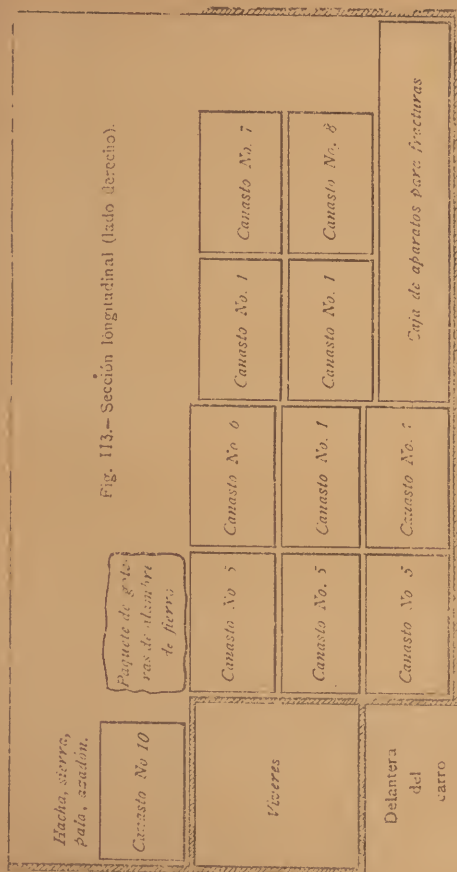 Fig. 113.— Sección longitudinal (lado derecho).
Hacha, sierra,
pala, azadón.
Canasto No 10
Paquete de
ras de alambre
de fierro
Canasto No 5
Canasto No 6
Canasto No. 1
Canasto No. 7
Víveres
Canasto No. 5
Canasto No. 1
Canasto No. 1
Canasto No. 8
Delantera
del
carro
Canasto No 5
Canasto No.
Caja de aparatos para fracturas